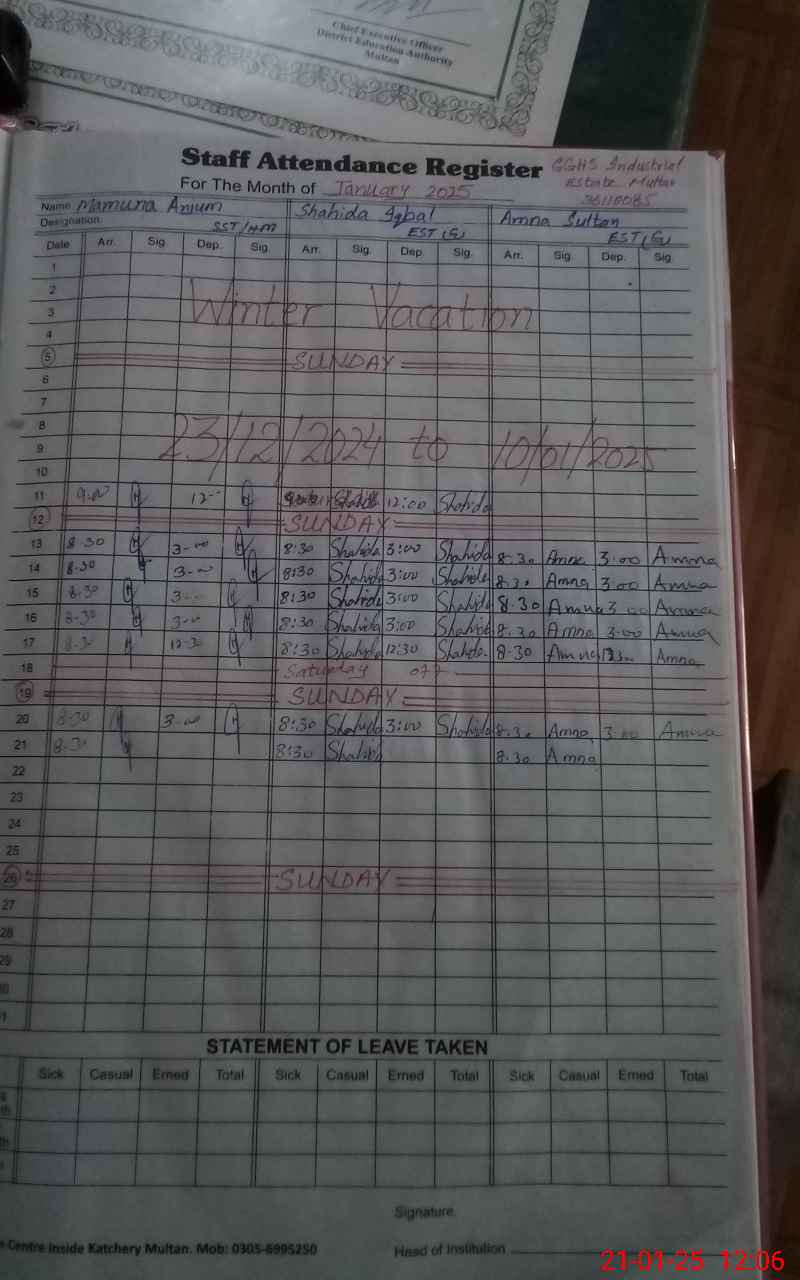 Chief Executive Officer
District Education Authority
Multan
Staff Attendance Register GGHS Industrial
For The Month of January 2025 Estate Multan
36110085
Name Mamuna Anjum Shahida Iqbal Amna Sultan
Designation. SST/HM EST (G) EST (G)
Date Arr. Sig. Dep. Sig. Arr. Sig. Dep. Sig. Arr. Sig. Dep. Sig.
1
2
3 Winter Vacation
4
5 SUNDAY
6
7
8
9 23/12/2024 to 10/01/2025
10
11 9.00 12- 12:00 Shahida
12 SUNDAY
13 8.30 3-00 8:30 Shahida 3:00 Shahida 8.30 Amna 3.00 Amna
14 8.30 3-00 8:30 Shahida 3:00 Shahida 8.30 Amna 3.00 Amna
15 8.30 3-00 8:30 Shahida 3:00 Shahida 8.30 Amna 3.00 Amna
16 8.30 3-00 8:30 Shahida 3:00 Shahida 8.30 Amna 3.00 Amna
17 8.30 12-30 8:30 Shahida 12:30 Shahida 8.30 Amna Amna
18 Saturday off
19 SUNDAY
20 8.30 3-00 8:30 Shahida 3:00 Shahida 8.30 Amna 3.00 Amna
21 8.30 8:30 Shahida 8.30 Amna
22
23
24
25
26 SUNDAY
27
28
29
STATEMENT OF LEAVE TAKEN
Sick Casual Erned Total Sick Casual Erned Total Sick Casual Erned Total
Signature.
Centre Inside Katchery Multan. Mob: 0305-6995250 Head of Institution
21-01-25 12:06